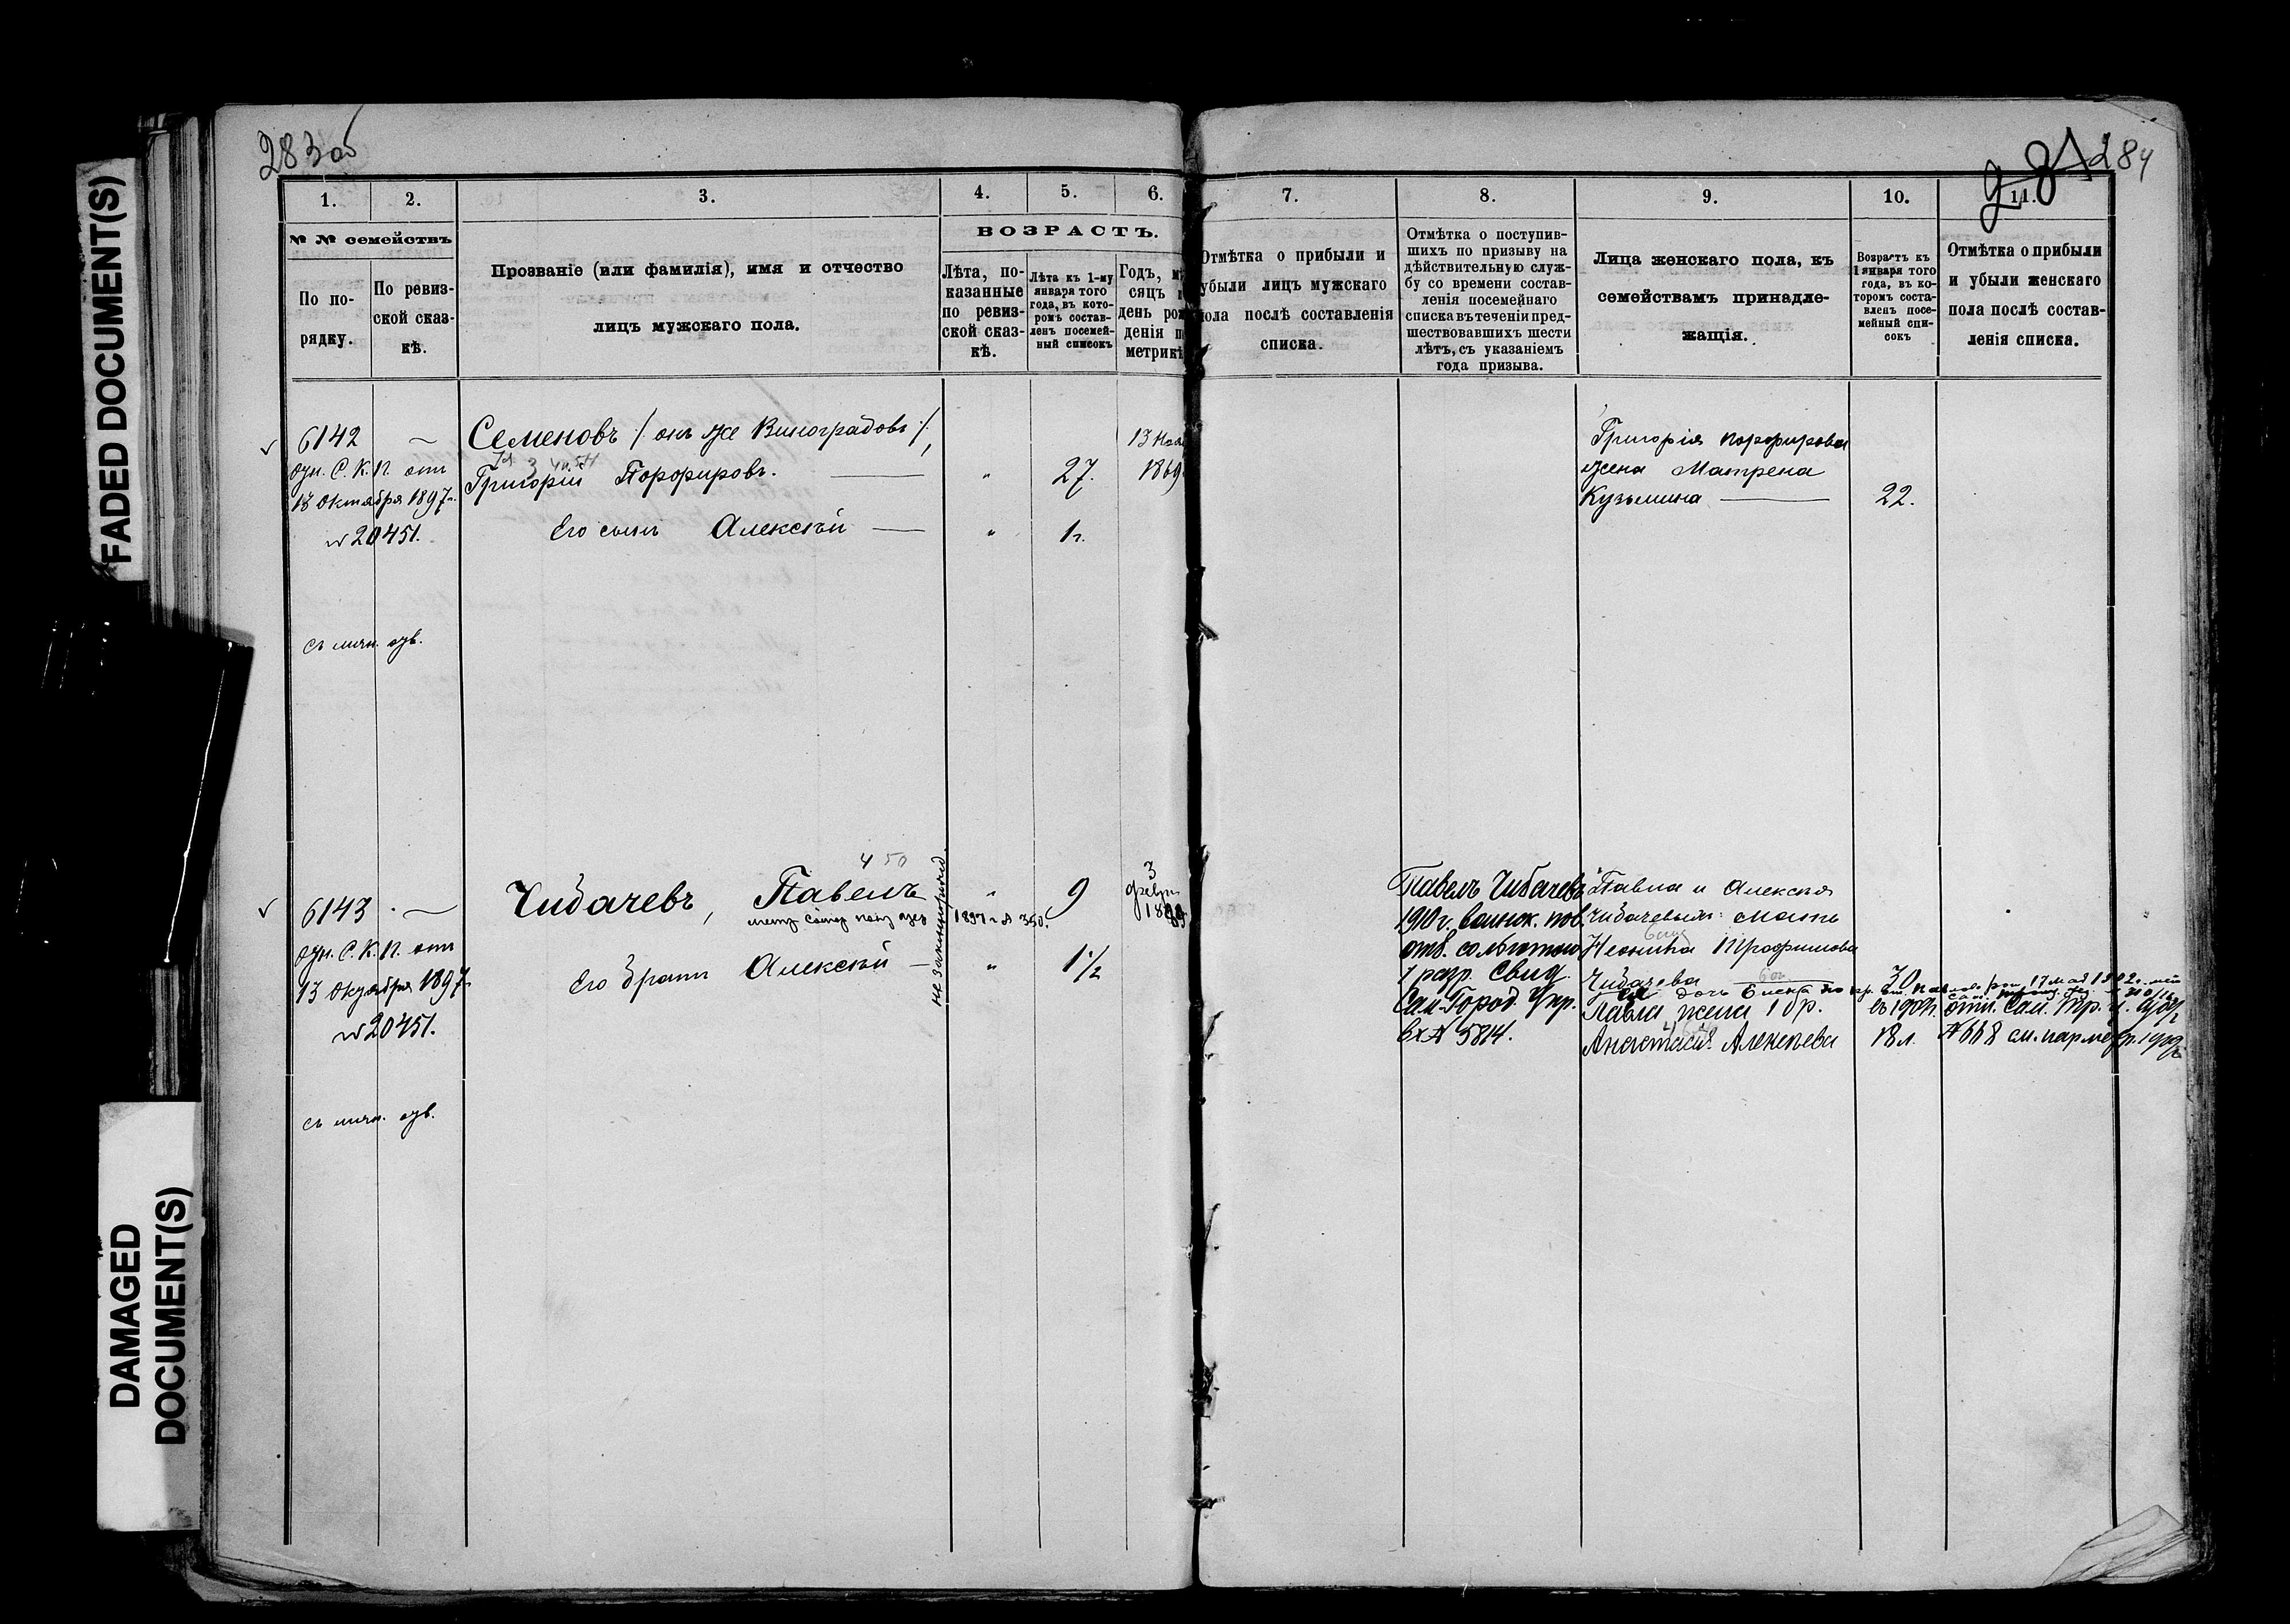 283 об
284
FADED DOCUMENT(S)
DAMAGED
DOCUMENT(S)
1.
2.
3.
4.
5.
6.
№ № семействъ
По по-
рядку.
По ревиз-
ской сказ-
кѣ.
Прозваніе (или фамилія), имя и отчество
лицъ мужскаго пола.
ВОЗРАСТЪ.
Лѣта, по-
казанные
по ревиз-
ской сказ-
кѣ.
Лѣта къ 1-му
января того
года, въ кото-
ромъ состав-
ленъ посемей-
ный списокъ
Годъ, мѣ
сяцъ и
день рож
денія п
метрикѣ
7.
8.
9.
10.
11.
Отмѣтка о прибыли и
убыли лицъ мужскаго
пола послѣ составленія
списка.
Отмѣтка о поступив-
шихъ по призыву на
дѣйствительную служ-
бу со времени состав-
ленія посемейнаго
списка въ теченіи пред-
шествовавшихъ шести
лѣтъ, съ указаніемъ
года призыва.
Лица женскаго пола, къ
семействамъ принадле-
жащія.
Возрастъ къ
1 января того
года, въ ко-
торомъ соста-
вленъ посе-
мейный спи-
сокъ
Отмѣтка о прибыли
и убыли женскаго
пола послѣ состав-
ленія списка.
6142
С. К. П. отъ
13 Октября 1897 г.
№ 20451.
Семеновъ /: онъ же Виноградовъ :/,
Григорій Порфировъ.
27.
13 Ноя
1869
Его сынъ Алексѣй
1 г.
Григорія Порфирова
жена Матрена
Кузьмина
22.
6143
С. К. П. отъ
13 Октября 1897
№ 20451.
Чибачевъ, Павелъ
1897 г. № 350.
9
3
февр
1889
Его братъ Алексѣй
1 1/2
Павелъ Чибачевъ
1910 г. воинск. пов.
отб. со льготою
1 разр. Свид.
Сам. Город. Упр.
вх № 5814.
Павла и Алексѣя
Чибачевыхъ мать
Чибачева
30
дочь Елена
17 мая 1902 г.
Павла жена 1 бр.
въ 1909 г.
Анастасія Алексѣева
18 л.
№ 668